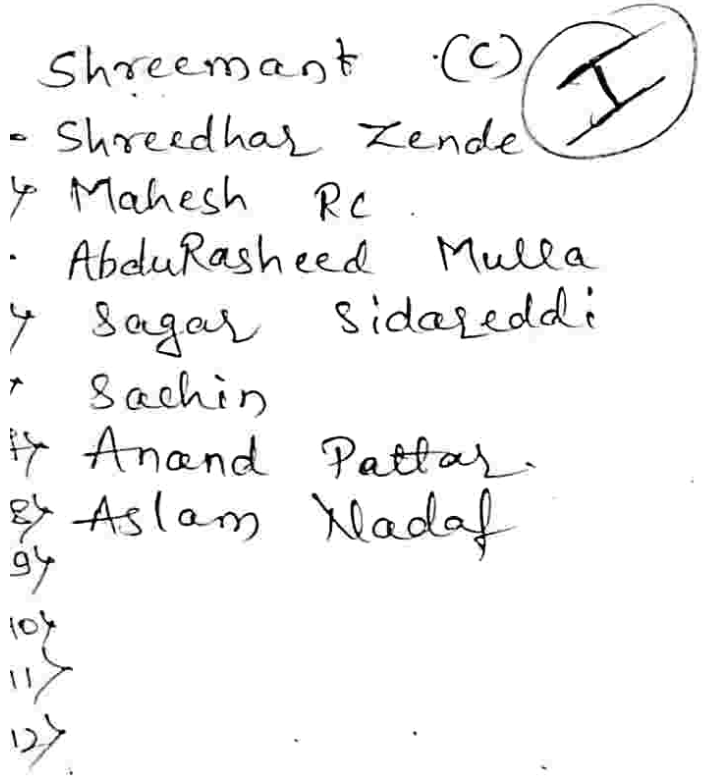 Shreemant (C) I
Shreedhar Zende
Mahesh RC.
AbduRasheed Mulla
Sagar Sidareddi
Sachin
7) Anand Pattar.
8) Aslam Nadaf
9)
10)
11)
12)